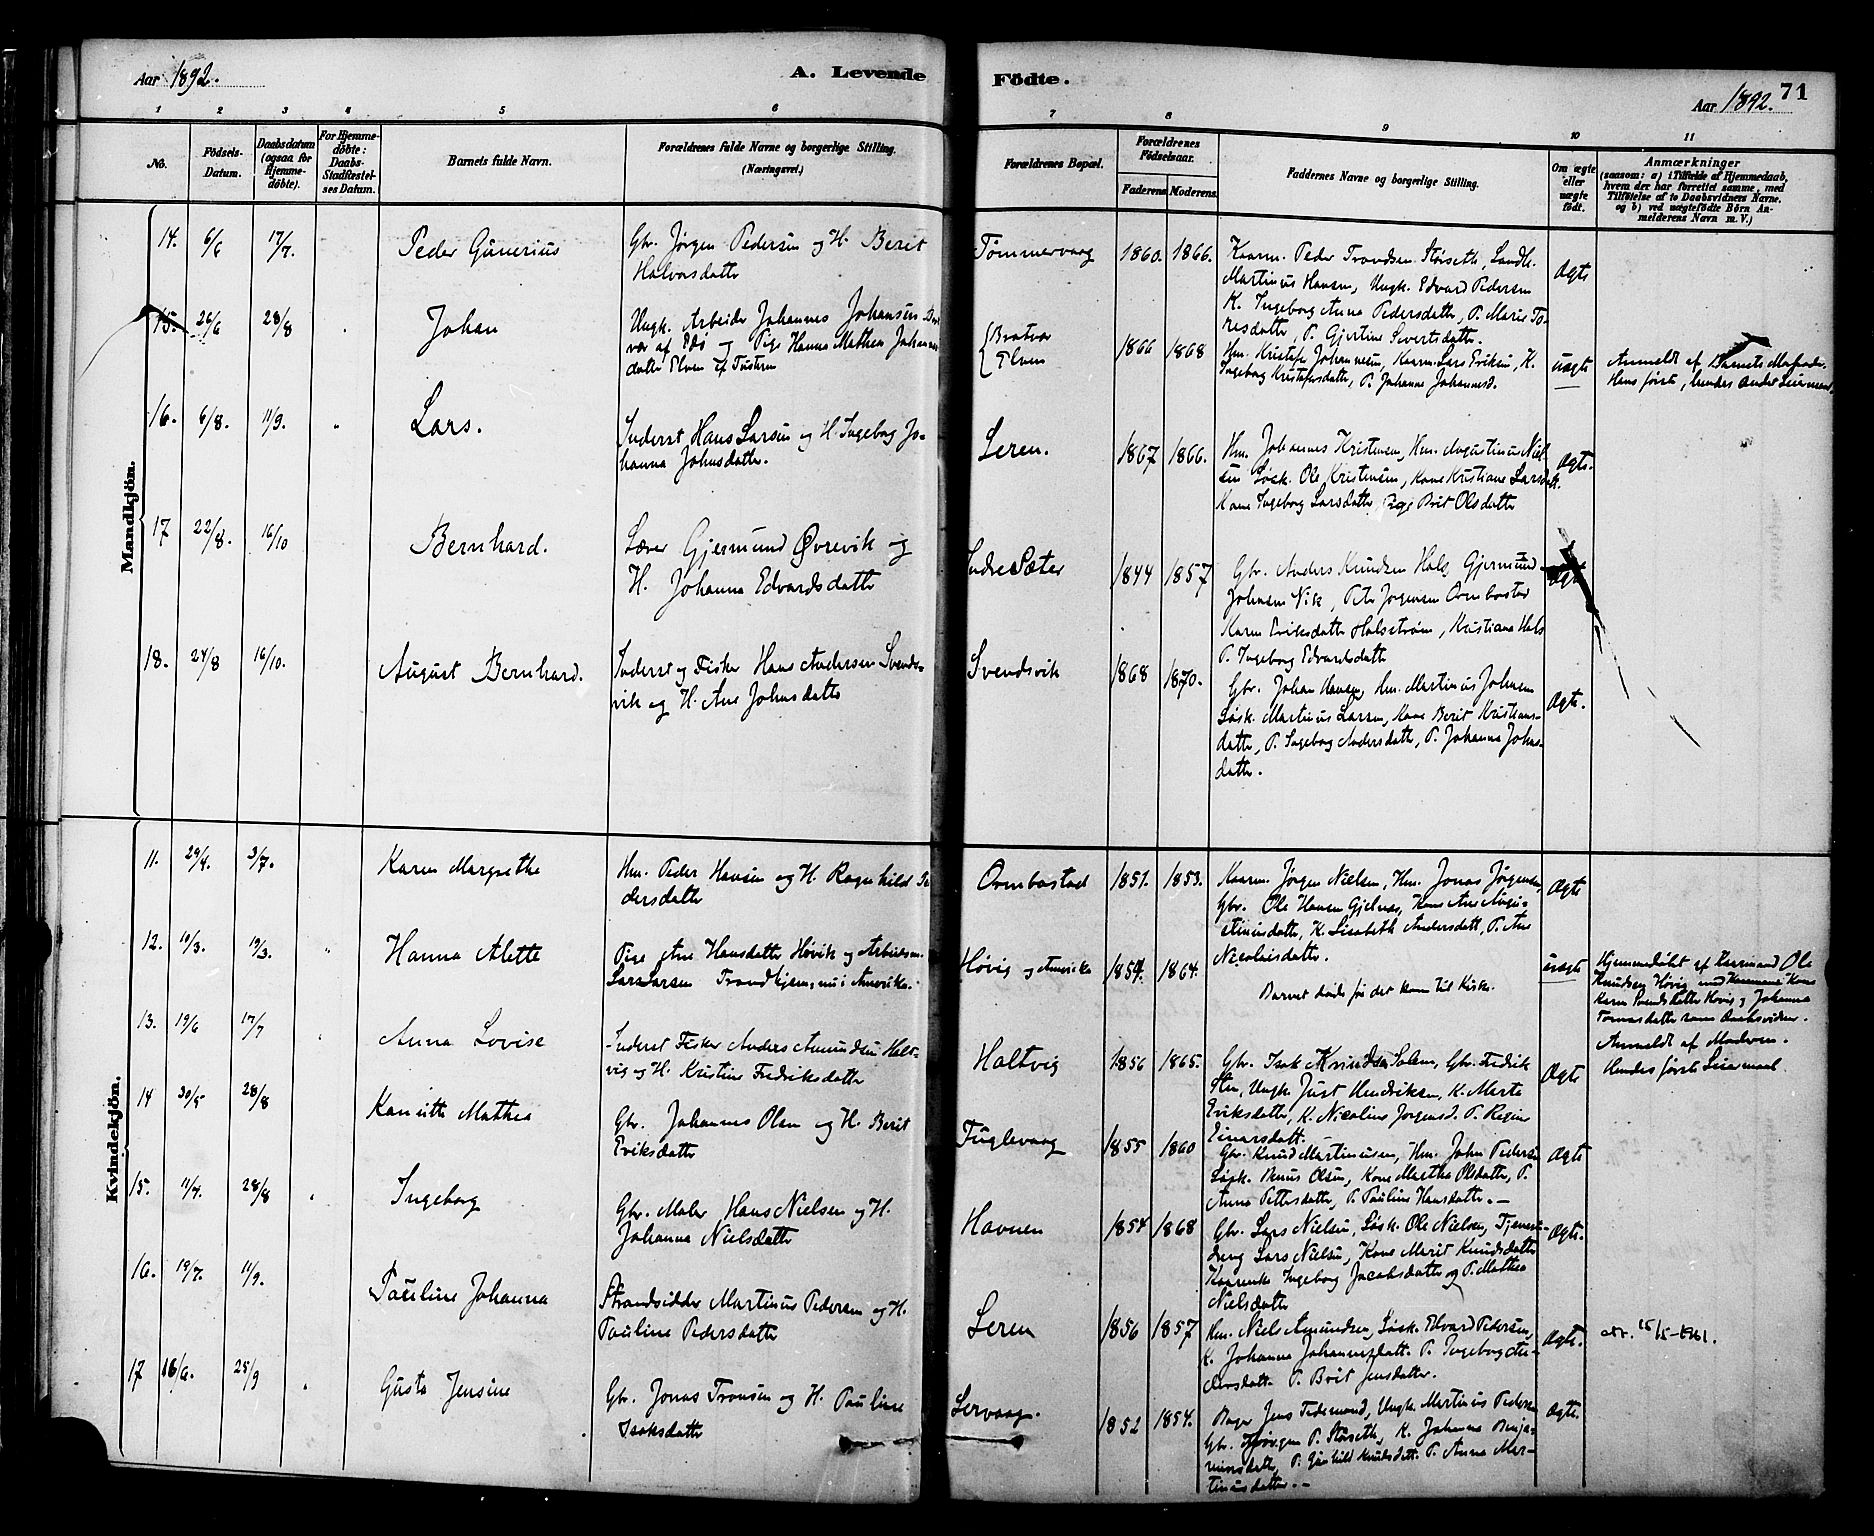 Aar 1892.
A. Levende
Födte.
71
Aar 1892.
1 2 3 4 5 6 7 8 9 10 11
No.
Födsels-Datum.
Daabsdatum (ogsaa for Hjemmedöbte).
For Hjemmedöbte: Daabs-Stadfæstelses Datum.
Barnets fulde Navn.
Forældrenes fulde Navne og borgerlige Stilling. (Næringsvei.)
Forældrenes Bopæl.
Forældrenes Födselsaar.
Faderens Moderens.
Faddernes Navne og borgerlige Stilling.
Om ægte eller uægte født.
Anmærkninger
(saasom: a) i Tilfælde af Hjemmedaab,
hvem der har forrettet samme, med
Tilföielse af to Daabsvidners Navne,
og b) ved uægtefödte Börn Anmelderens Navn m. V.)
Mandkjön.
14. 6/6 17/7. Peder Gunerius
Gbr. Jørgen Pedersen og H. Berit
Halvorsdatter
Tømmervaag 1860. 1866.
Kaarm. Peder Trondsen Størseth, Landh.
Martinus Hansen, Ungk. Edvard Pedersen
K. Ingeborg Anna Pedersdatter, P. Marie To-
resdatter, P. Gjertine Sivertsdatter.
Ægte
15. 26/6 28/8 Johan
Ungk. Arbeider Johannes Johansen
vær af Edø og Pige Hanna Mathea Johannes
datter Elven af Tusteren
Bratvær
Elven
1866 1868
Hm. Kristofer Johannesen, Kaarm. Lars Eriksen, K.
Ingeborg Kristofersdatter, P. Johanne Johannesd.
uægte
Anmeldt af Barnets Morfader.
Hans første, hendes andet Leiermaal.
16. 6/8. 11/9. Lars.
Inderst Hans Larsen og H. Ingeborg Jo-
hanna Johnsdatter.
Leren. 1867 1866.
Hm. Johannes Kristensen, Hm. Augustinus Niel-
sen Løsk. Ole Kristensen, Kone Kristiane Larsdatt.
Kone Ingeborg Larsdatter, Pige Brit Olsdatter
Ægte.
17 22/8. 16/10 Bernhard.
Lærer Gjermund Øvrevik og
H. Johanna Edvardsdatter
Indre Sæter 1844 1857
Gbr. Anders Knudsen Hals, Gjermund
Johnsen Vik, Peter Jørgensen Ormbostad
Karen Eriksdatter Halsstrøm, Kristiane Hals
P. Ingeborg Edvardsdatter
Ægte
18. 24/8 16/10. August Bernhard.
Inderst og Fisker Hans Andersen Svends-
vik og H. Ane Johnsdatter
Svendsvik 1868 1870.
Gbr. Johan Hansen, Hm. Martinus Johnsen
Løsk. Martinus Larsen, Kone Berit Kristians-
datter, P. Ingeborg Andersdatter, P. Johanna Johns-
datter.
Ægte.
Kvindekjön.
11. 29/4. 3/7. Karen Margrethe
Hm. Peder Hansen og H. Ragnhild Pe
dersdatter
Ormbostad 1851. 1853.
Kaarm. Jørgen Nielsen, Hm. Jonas Jørgensen,
Gbr. Ole Hansen Gjelnæs, Kone Ane Augu-
stinusdatter, K. Lisabeth Andersdatt, P. Ane
Nicolaisdatter.
Ægte
12. 10/3. 19/3. Hanna Alette
Pige Ane Hansdatter Høvik og Arbeidsm.
Lars Larsen Trondhjem, nu i Amerika.
Høvig og Amerika 1854. 1864.
Barnet døde før det kom til Kirke.
uægte
Hjemmedøbt af Kaarmand Ole
Knudsen Høvig med Kone
Karen Svendsdatter Høvig og Johanna
Tomasdatter som Daabsvidner.
Anmeldt af Moderen.
Hendes første Leiermaal.
13. 19/6 17/7 Anna Lovise
Inderst Fisker Anders Amundsen Holt-
vig og H. Kristine Fredriksdatter
Holtvig 1856 1865.
Gbr. Isak Knudsen Solem, Gbr. Fredrik
Sten, Ungk. Just Hendriksen, K. Marta
Eriksdatter, K. Nicoline Jørgensd. P. Regine
Einarsdatt.
Ægte
14 30/5 28/8 Mathea
Gbr. Johannes Olsen og H. Berit
Eriksdatter
Fuglevaag 1855 1860
Gbr. Knud Martinusen, Hm. John Pedersen
Løsk. Olsen, Kone Martha Olsdatter, P.
Anna Pettersdatter, P. Pauline Hansdatter.
Ægte
15. 11/7. 28/8 Ingeborg
Gbr. Maler Hans Nielsen og H.
Johanna Nielsdatter
Havnen 1854 1868
Gbr. Lars Nielsen, Løsk. Ole Nielsen, Tjeneste-
dreng Lars Nielsen, Kone Marit Knudsdatter
Kaarenke Ingeborg Jacobsdatter og P. Mathea
Nielsdatter
Ægte.
16. 19/7. 11/9. Pauline Johanna
Strandsidder Martinus Pedersen og H.
Pauline Pedersdatter
Leren 1856 1857
Hm. Niels Amundsen, Løsk. Edvard Pedersen,
K. Johanna Johannesdatt. P. Ingeborg An-
dersdatt. P. Brit Jensdatter.
Ægte.
17 16/6. 25/9 Gusta Jensine
Gbr. Jonas Tronsen og H. Pauline
Isaksdatter
Lervaag. 1852 1854.
Bager Jens Tidemand, Ungk. Martinus Pedersen
Gbr. Jørgen P. Størseth, K. Johanna Benja-
minsdatter, P. Gunhild Knudsdatt. P. Anna Mar-
tinusdatter.
Ægte.